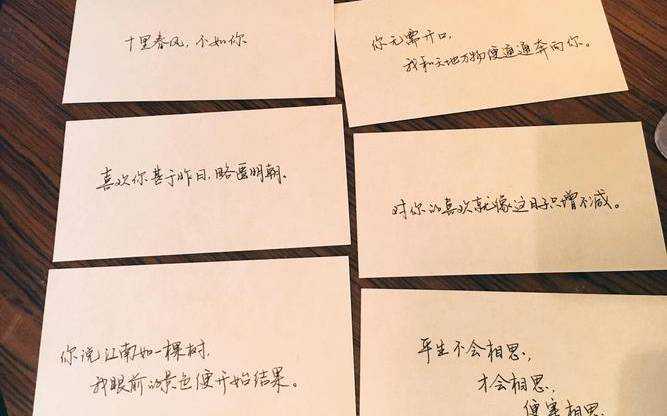 十里春风，不如你
你无需开口，
我和天地万物便通通奔向你。
喜欢你甚于昨日，略匮明朝。
对你的喜欢就像这日子只增不减。
你说江南如一棵树，
我眼前的景色便开始结果。
平生不会相思，
才会相思，
便害相思